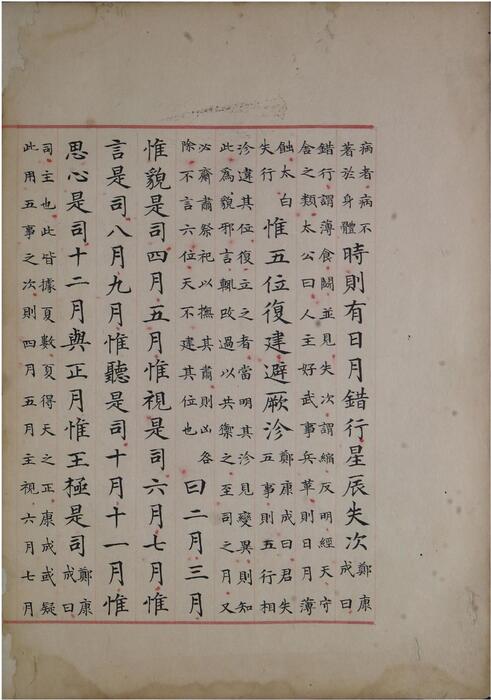 病者病不
著於身體
時則有日月錯行星辰失次
鄭康
成曰
錯行謂薄食鬬並見失次謂縮反明經天守
舍之類太公曰人主好武事兵革則日月薄
蝕太白
失行
惟五位復建避厥沴
鄭康成曰君失
五事則五行相
沴違其位復立之者當明其沴見變異則知
此為貌邪言輒改過以共禦之至司之月又
必齋肅祭祀以撫其肅則凶咎
除不言六位天不建其位也
曰二月三月
惟貌是司四月五月惟視是司六月七月惟
言是司八月九月惟聽是司十月十一月惟
思心是司十二月與正月惟王極是司
鄭康
成曰
司主也此皆據夏數夏得天之正康成或疑
此用五事之次則四月五月主視六月七月